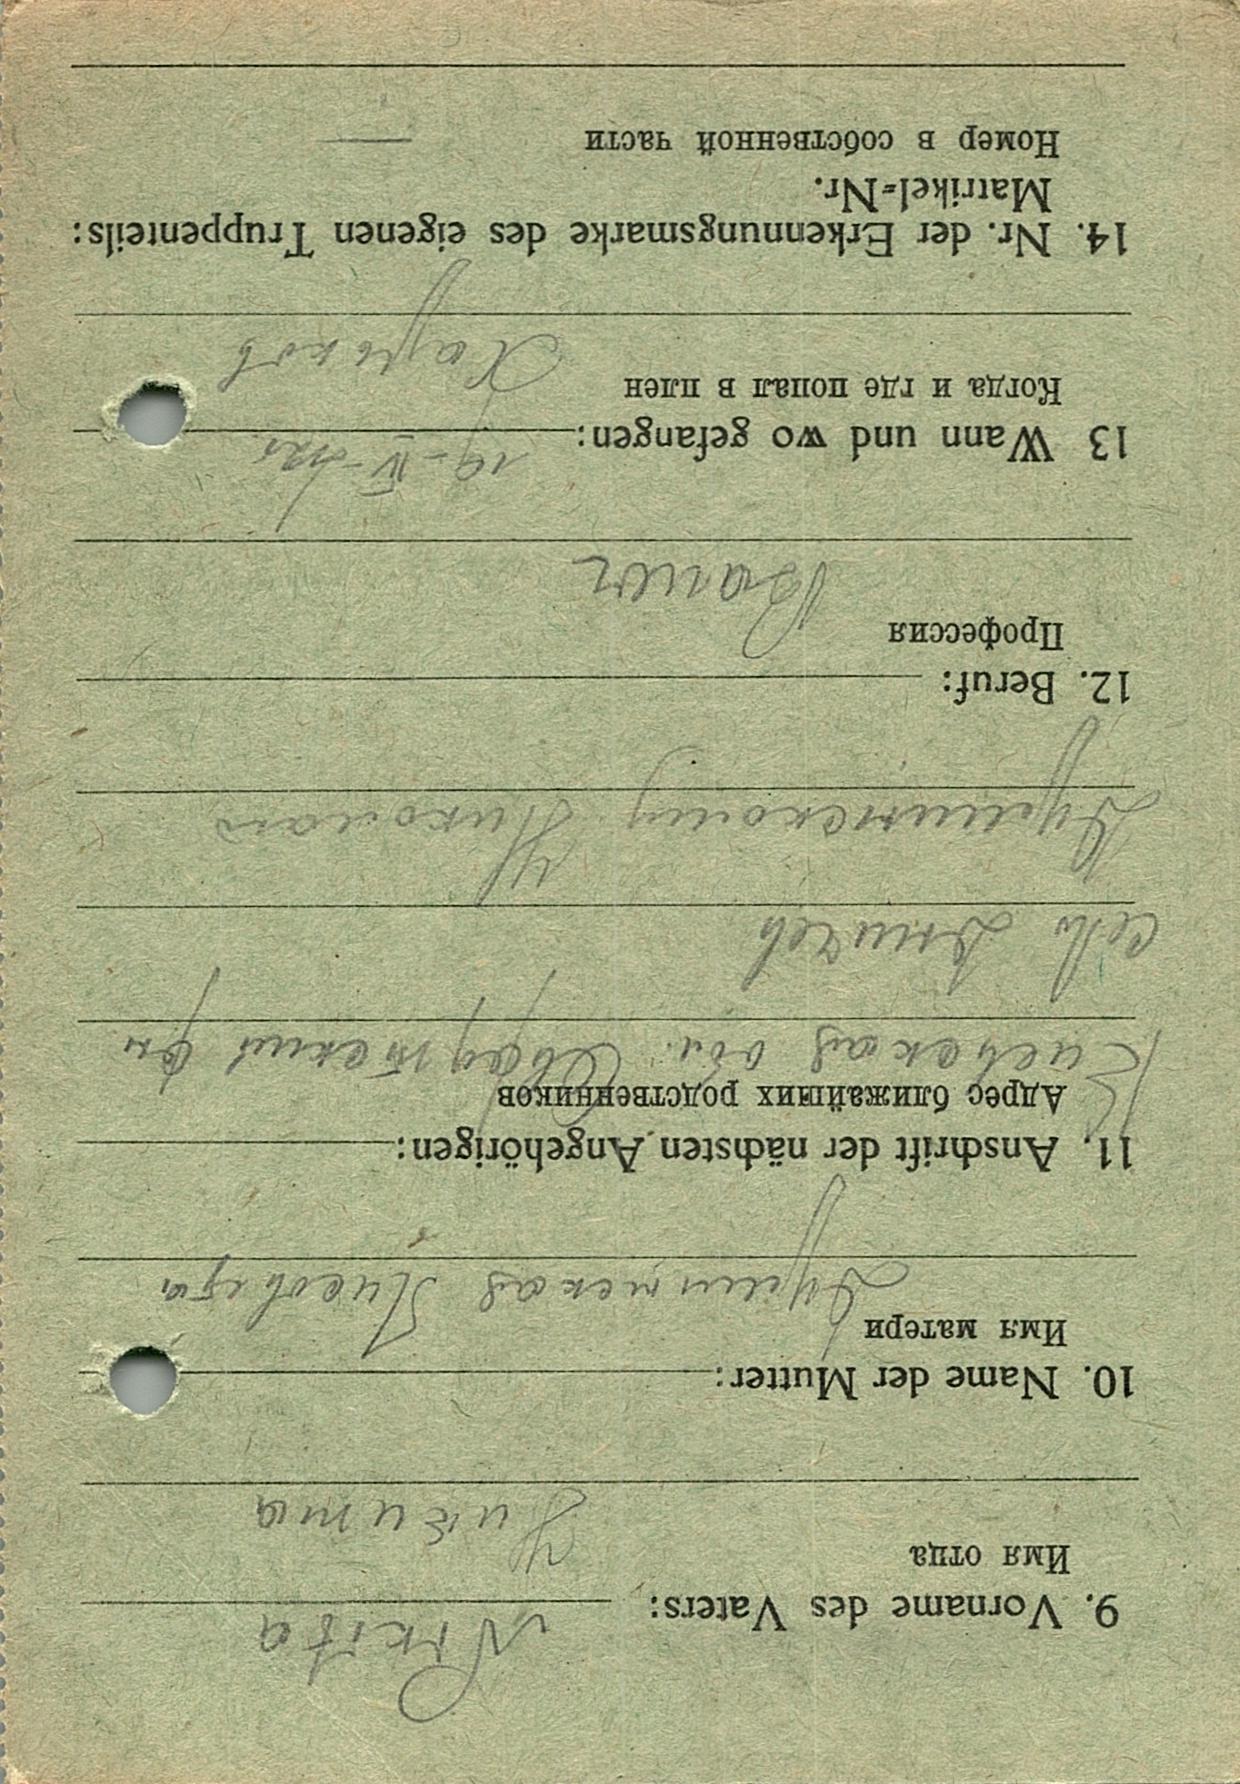 9. Vorname des Vaters: Nikita
Имя отца
Никита
10. Name der Mutter:
Имя матери
11. Anschrift der nächsten Angehörigen:
Адрес ближайших родственников
Киевская обл.
село
Николаю
12. Beruf:
Профессия
Bauer
13 Wann und wo gefangen: 19-IV-
Когда и где попал в плен
Харьков
14. Nr. der Erkennungsmarke des eigenen Truppenteils:
Matrikel-Nr.
Номер в собственной части —